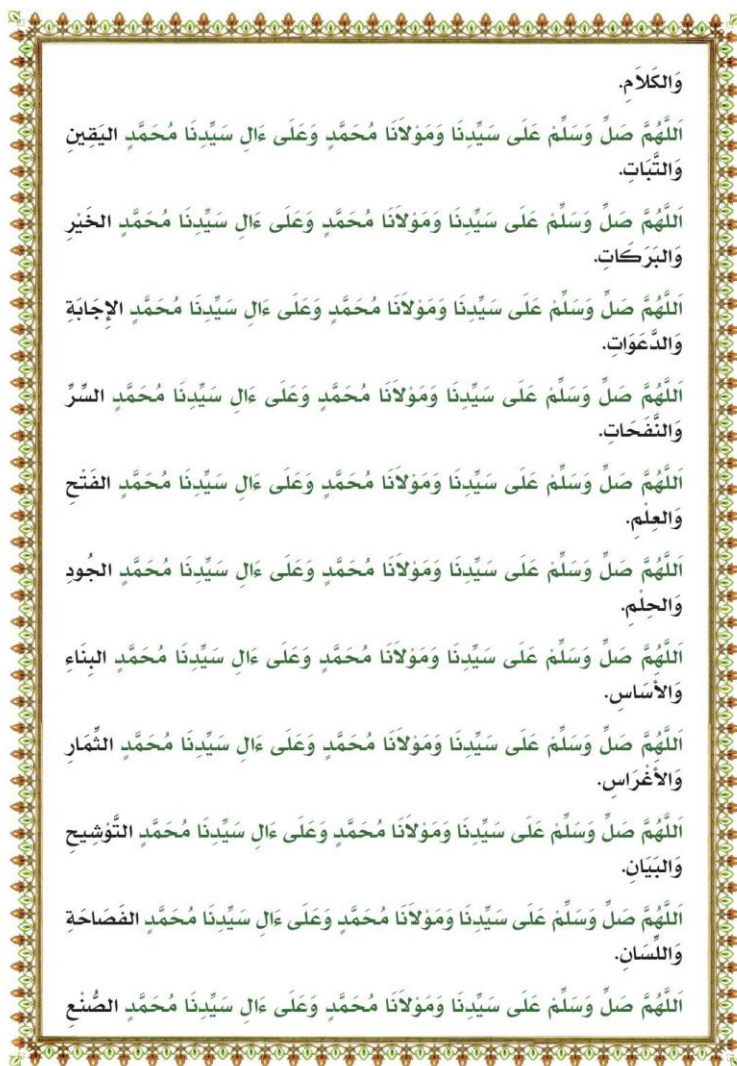 وَالكَلاَمِ.
اَللَّهُمَّ صَلِّ وَسَلِّمْ عَلَى سَيِّدِنَا وَمَوْلاَنَا مُحَمَّدٍ وَعَلَى ءَالِ سَيِّدِنَا مُحَمَّدٍ اليَقِينِ
وَالثَّبَاتِ.
اَللَّهُمَّ صَلِّ وَسَلِّمْ عَلَى سَيِّدِنَا وَمَوْلاَنَا مُحَمَّدٍ وَعَلَى ءَالِ سَيِّدِنَا مُحَمَّدٍ الخَيْرِ
وَالبَرَكَاتِ.
اَللَّهُمَّ صَلِّ وَسَلِّمْ عَلَى سَيِّدِنَا وَمَوْلاَنَا مُحَمَّدٍ وَعَلَى ءَالِ سَيِّدِنَا مُحَمَّدٍ الإِجَابَةِ
وَالدَّعَوَاتِ.
اَللَّهُمَّ صَلِّ وَسَلِّمْ عَلَى سَيِّدِنَا وَمَوْلاَنَا مُحَمَّدٍ وَعَلَى ءَالِ سَيِّدِنَا مُحَمَّدٍ السِّرِّ
وَالنَّفَحَاتِ.
اَللَّهُمَّ صَلِّ وَسَلِّمْ عَلَى سَيِّدِنَا وَمَوْلاَنَا مُحَمَّدٍ وَعَلَى ءَالِ سَيِّدِنَا مُحَمَّدٍ الفَتْحِ
وَالعِلْمِ.
اَللَّهُمَّ صَلِّ وَسَلِّمْ عَلَى سَيِّدِنَا وَمَوْلاَنَا مُحَمَّدٍ وَعَلَى ءَالِ سَيِّدِنَا مُحَمَّدٍ الجُودِ
وَالحِلْمِ.
اَللَّهُمَّ صَلِّ وَسَلِّمْ عَلَى سَيِّدِنَا وَمَوْلاَنَا مُحَمَّدٍ وَعَلَى ءَالِ سَيِّدِنَا مُحَمَّدٍ البِنَاءِ
وَالأَسَاسِ.
اَللَّهُمَّ صَلِّ وَسَلِّمْ عَلَى سَيِّدِنَا وَمَوْلاَنَا مُحَمَّدٍ وَعَلَى ءَالِ سَيِّدِنَا مُحَمَّدٍ الثِّمَارِ
وَالأَغْرَاسِ.
اَللَّهُمَّ صَلِّ وَسَلِّمْ عَلَى سَيِّدِنَا وَمَوْلاَنَا مُحَمَّدٍ وَعَلَى ءَالِ سَيِّدِنَا مُحَمَّدٍ التَّوْشِيحِ
وَالبَيَانِ.
اَللَّهُمَّ صَلِّ وَسَلِّمْ عَلَى سَيِّدِنَا وَمَوْلاَنَا مُحَمَّدٍ وَعَلَى ءَالِ سَيِّدِنَا مُحَمَّدٍ الفَصَاحَةِ
وَاللِّسَانِ.
اَللَّهُمَّ صَلِّ وَسَلِّمْ عَلَى سَيِّدِنَا وَمَوْلاَنَا مُحَمَّدٍ وَعَلَى ءَالِ سَيِّدِنَا مُحَمَّدٍ الصُّنْعِ